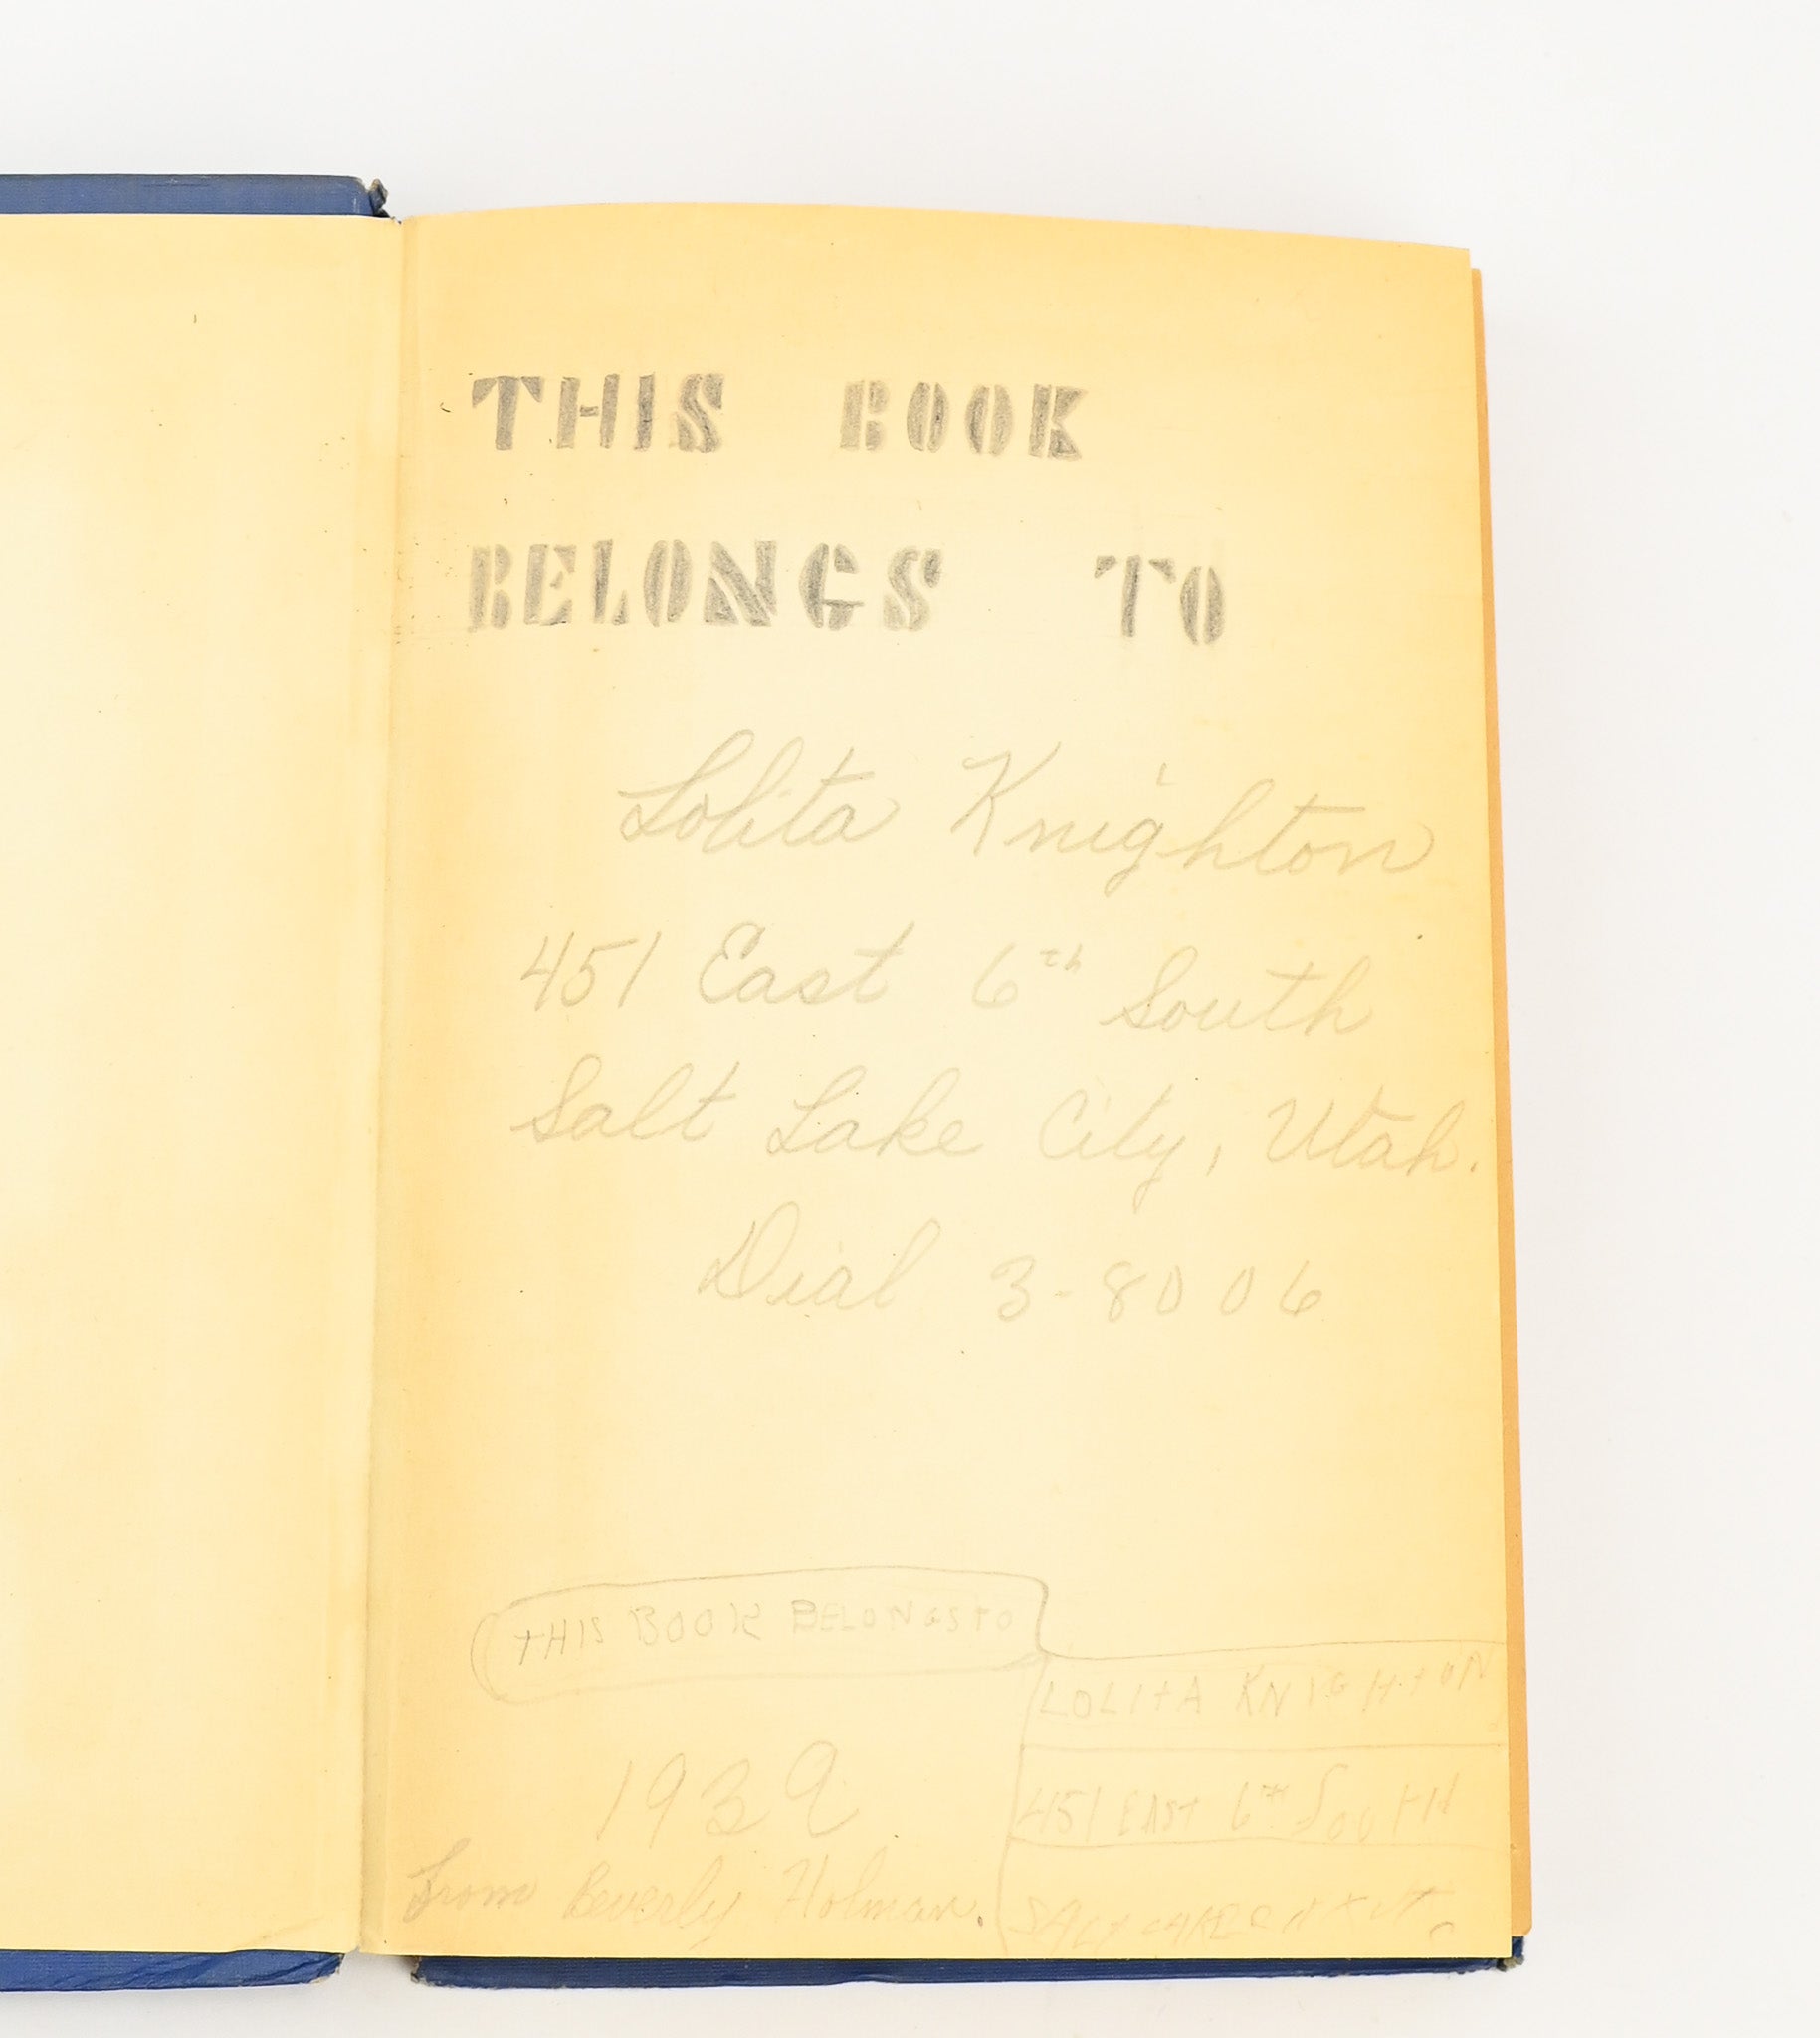 THIS BOOK
BELONGS TO
Lolita Knighton
451 East 6th South
Salt Lake City, Utah.
Dial 3-8006
THIS BOOK BELONGS TO
LOLITA KNIGHTON
1939
451 EAST 6TH SOUTH
From Beverly Holman.
SALT LAKE